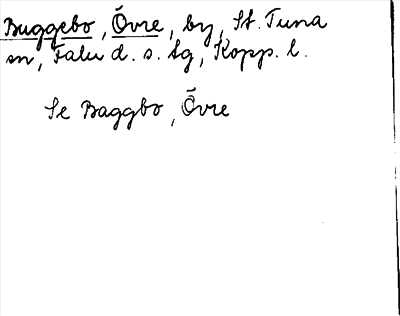 Buggebo, Övre, by, St. Tuna
sn, Falu d. s. tg, Kopp. l.
Se Baggbo, Övre